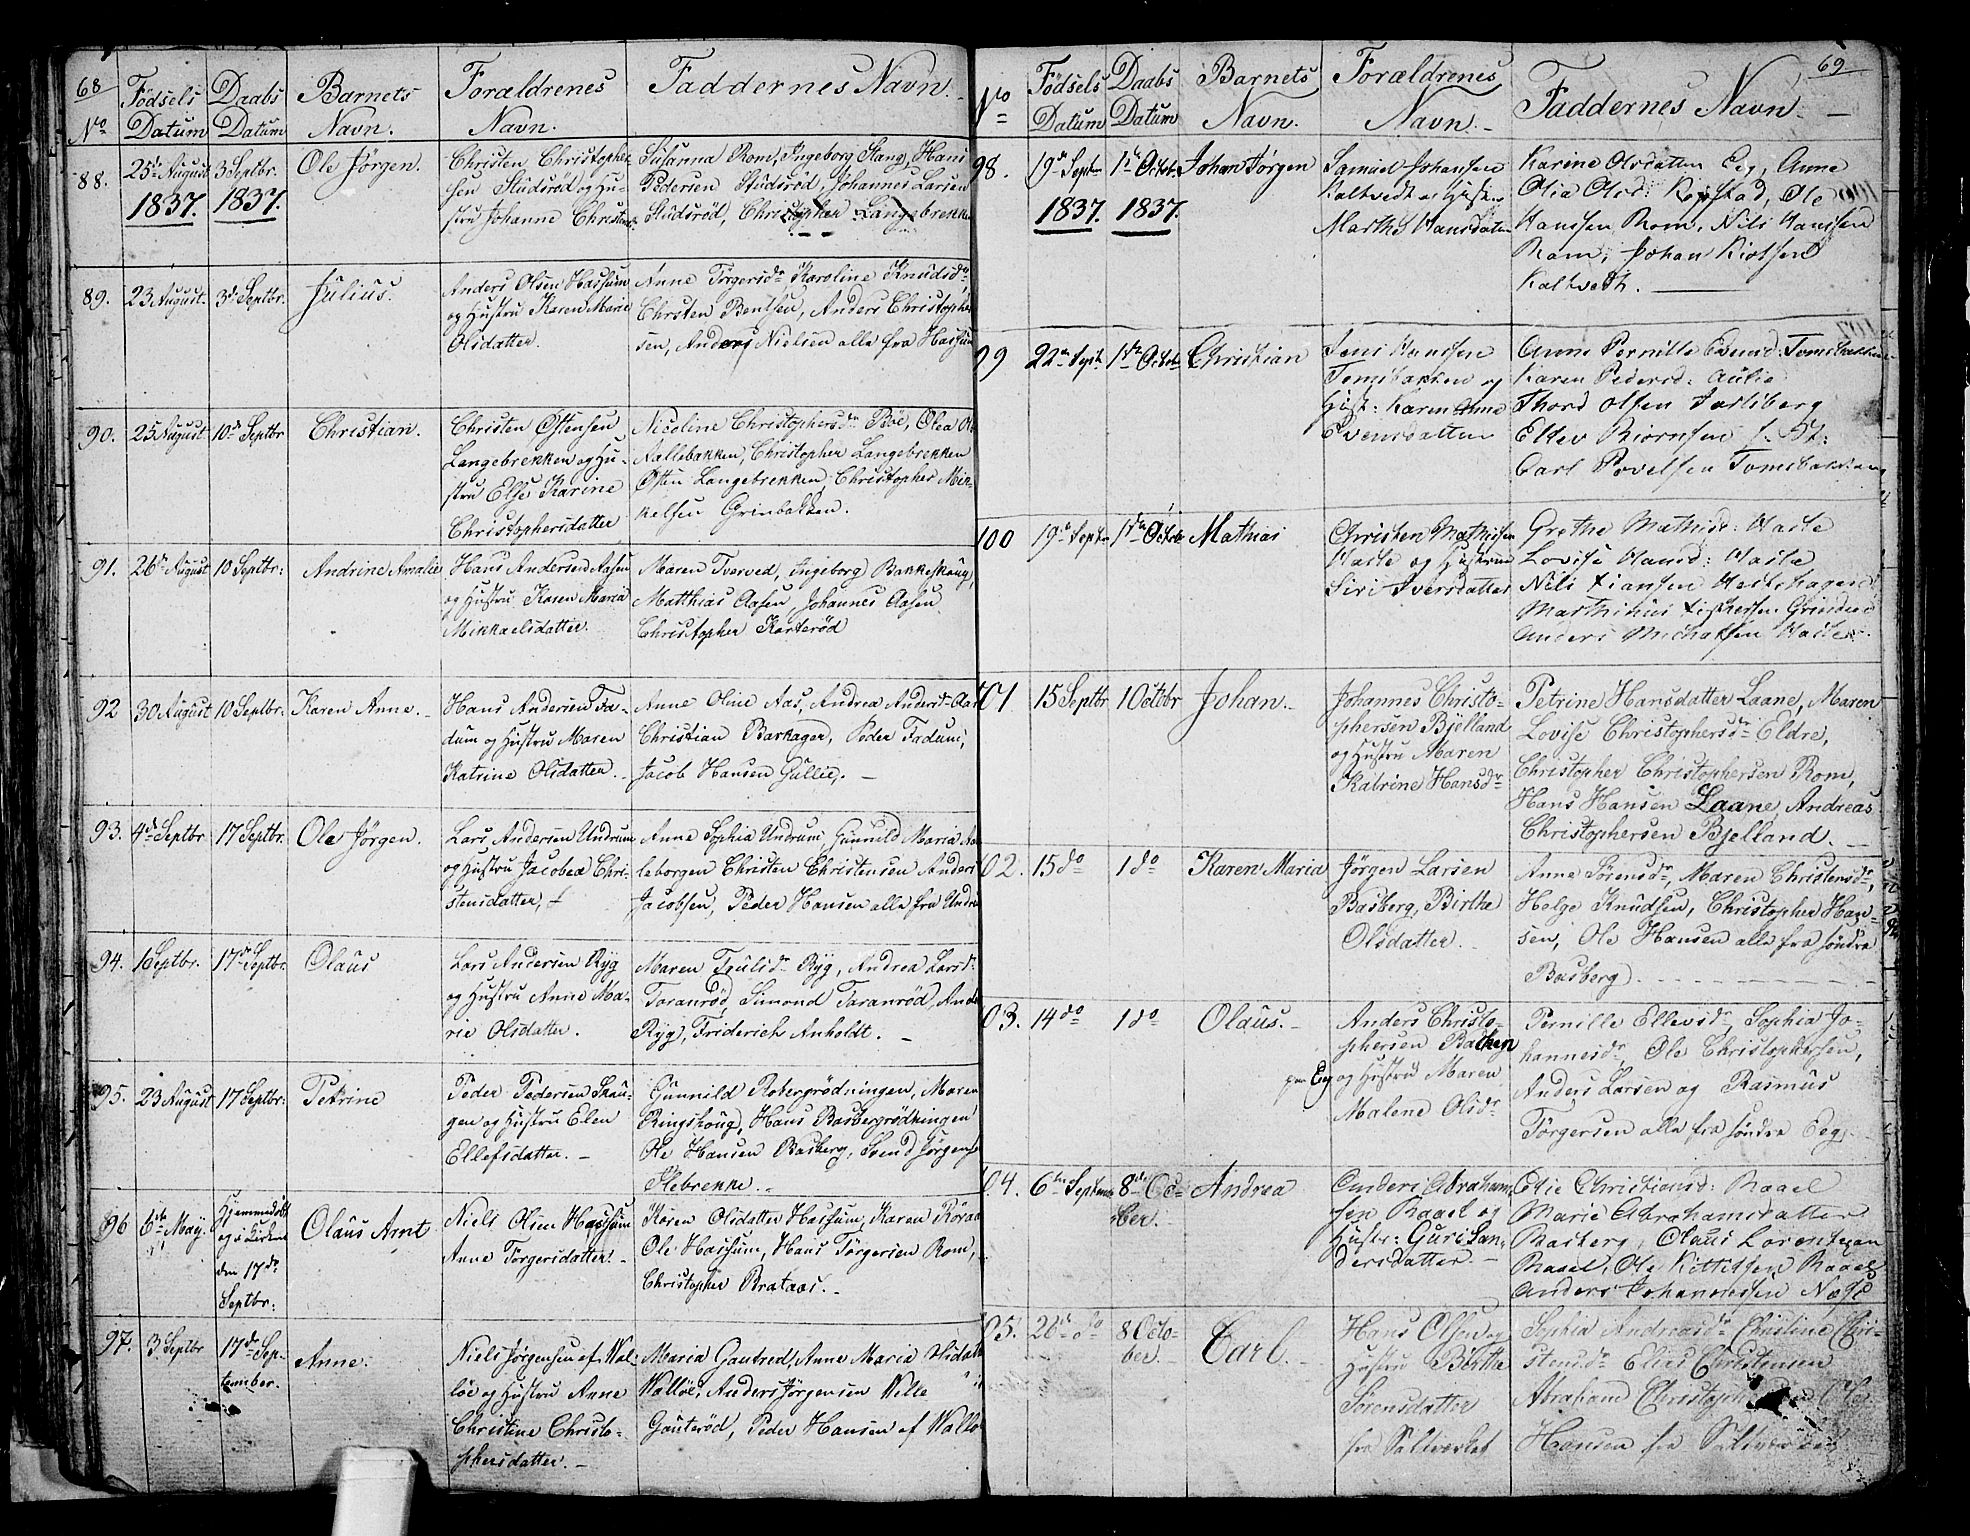 68
No
Födsels Datum
Daabs Datum
Barnets Navn.
Forældrenes Navn.
Faddernes Navn.
88.
25de August
1837.
3 Septbr.
1837.
Ole Jörgen.
Christen Christopher-
sen Studsröd og Hu-
stru Johanne Christens
Susanna Rom, Ingeborg Stang, Hans
Pedersen Studsröd, Johannes Larsen
Studsröd, Christopher Langebrekke
89.
23 August.
3de Septbr.
Julius.
Anders Olsen Hassum
og Hustru Karen Marie
Olsdatter.
Anne Törgersdr. Karoline Knudsdr.
Christen Bentsen, Anders Christopher
sen, Anders Nielsen alle fra Hassum
90.
25 August
10de Septbr
Christian.
Christen Östensen
Langebrekken og Hu-
stru Else Karine
Christophersdatter
Nicoline Christophersdr. Böe, Olea
Nallebakken, Christopher Langebrekken
Östen Langebrekken, Christopher Mik-
kelsen Grinbakken.
91.
26de August
10 Septbr:
Andrine Amalie
Hans Andersen Aasen
og Hustru Karen Maria
Mikkaelsdatter.
Maren Tverved, Ingeborg Bakkeskaug,
Matthias Aasen, Johannes Aasen
Christopher Korteröd
92
30 August
10 Septbr.
Karen Anne.
Hans Andersen Fa-
dum og Hustru Maren
Katrine Olsdatter.
Anne Oline Aas, Andrea Andersdr. Aas
Christian Barkager, Peder Fadum,
Jacob Hansen Gullie. —
93.
4de Septbr
17 Septbr.
Ole Jörgen.
Lars Andersen Undrum
og Hustru Jacobea Chri-
stensdatter,
Anne Sophia Undrum, Gunnild Maria
leborgen Christen Christensen Anders
Jacobsen, Peder Hansen alle fra Undru
94.
1 Septbr.
17de Septbr.
Olaus
Lars Andersen Ryg
og Hustru Anne Ma-
rie Olsdatter.
Maren Trulsdr. Ryg, Andrea Larsd:
Taranröd Simond Taranröd, Ande
Ryg, Friderich Anholdt. —
95.
23 August
17 Septbr:
Petrine
Peder Pedersen Skau-
gen og Hustru Elen
Ellefsdatter. —
Gunnild Robergrödningen, Maren
Ringshoug, Hans Basbergrödningen
Ole Hansen Basberg, Svend Jörgens
Flebrekke.
96
6te May.
Hjemmedöbt
og i Kirken
den 17de
Septbr:
Olaus Arnt
Niels Olsen Hassum
Anne Törgersdatter. —
Karen Olsdatter Hassum, Karen Röraa
Ole Hassum, Hans Törgersen Rom,
Christopher Brataas.
97.
3 Septbr
17de Sep-
tember.
Anne.
Niels Jörgensen af Wal-
löe og Hustru Anne
Christine Christo-
phersdatter. —
Maria Gautred, Anne Maria
Walloe, Anders Jörgensen Wille
Gauteröd, Peder Hansen af Wallo
69
No
Födsels Datum
Daabs Datum
Barnets Navn.
Forældrenes Navn. —
Faddernes Navn. —
98.
19de Septr
1837.
1ste Octob.
1837.
Johan Jörgen
Samuel Johansen
Kaltvedt og Hustru
Marthe Hansdatter
Karine Olsdatter Eeg, Anne
Olia Olsd: Ropstad, Ole
Hanssen Rom, Nils Hanssen
Rom, Johan
Kaltvedt.
99
22de Sept.
1ste Octob
Christian
Jens Hanssen
Tomsbakken og
Hust: Karen Anne
Evensdatter
Anne Pernille Evensd: Tomsbakken
Karen Pedersd: Aulie
Thord Olsen Jarlsberg
Ellev Biørnsen
Carl Povelsen Tomsbakken
100
19de Septr
1ste Octob
Mathias
Christen Mathisen
Hasle og Hustrue
Siri Iversdatter
Grethe Mathisd: Hasle
Lovise Hansd: Hasle
Nils
Marthinus
Anders Michalsen Hasle.
101
15 Septbr
1 Octobr
Johan.
Johannes Christo-
phersen Bjelland
og Hustru Maren
Katrine Hansdr
Petrine Hansdatter Laane, Maren
Lovise Christophersdr. Eldre,
Christopher Christophersen Rom,
Hans Hansen Laane, Andreas
Christophersen Bjelland. —
02.
15 do
1 do
Karen Maria
Jörgen Larsen
Basberg, Birthe
Olsdatter.
Anne Sörensdr, Maren Christensdr,
Helge Knudsen, Christopher Han-
sen, Ole Hansen alle fra söndre
Basberg.
03.
14 do
1 do
Olaus. —
Anders Christo-
phersen Bakken
paa Eeg og Hustru Maren
Malene Olsdr
Pernille Ellevsdr, Sophia Jo-
hannesdr, Ole Christophersen,
Anders Larsen og Rasmus
Törgersen alle fra söndre Eeg.
04.
6te Septembr
8de Oc-
tober.
Andrea
Anders Abraham-
sen Raael og
Hustr: Guri San-
dersdatter. —
Elie Christiansd: Raael
Marie Abrahamsdatter
Basberg, Olaus Lorentzen
Raael, Ole Kittilsen Raael
Anders Johannessen Næse
05.
26de do
8 Octo-
ber.
Carl.
Hans Olsen og
Hustru Birthe
Sörensdatter
fra Saltverket
Sophia Andreasdr Christine Chri-
stensdr Elias Christensen
Abraham
Hansen fra Saltverket